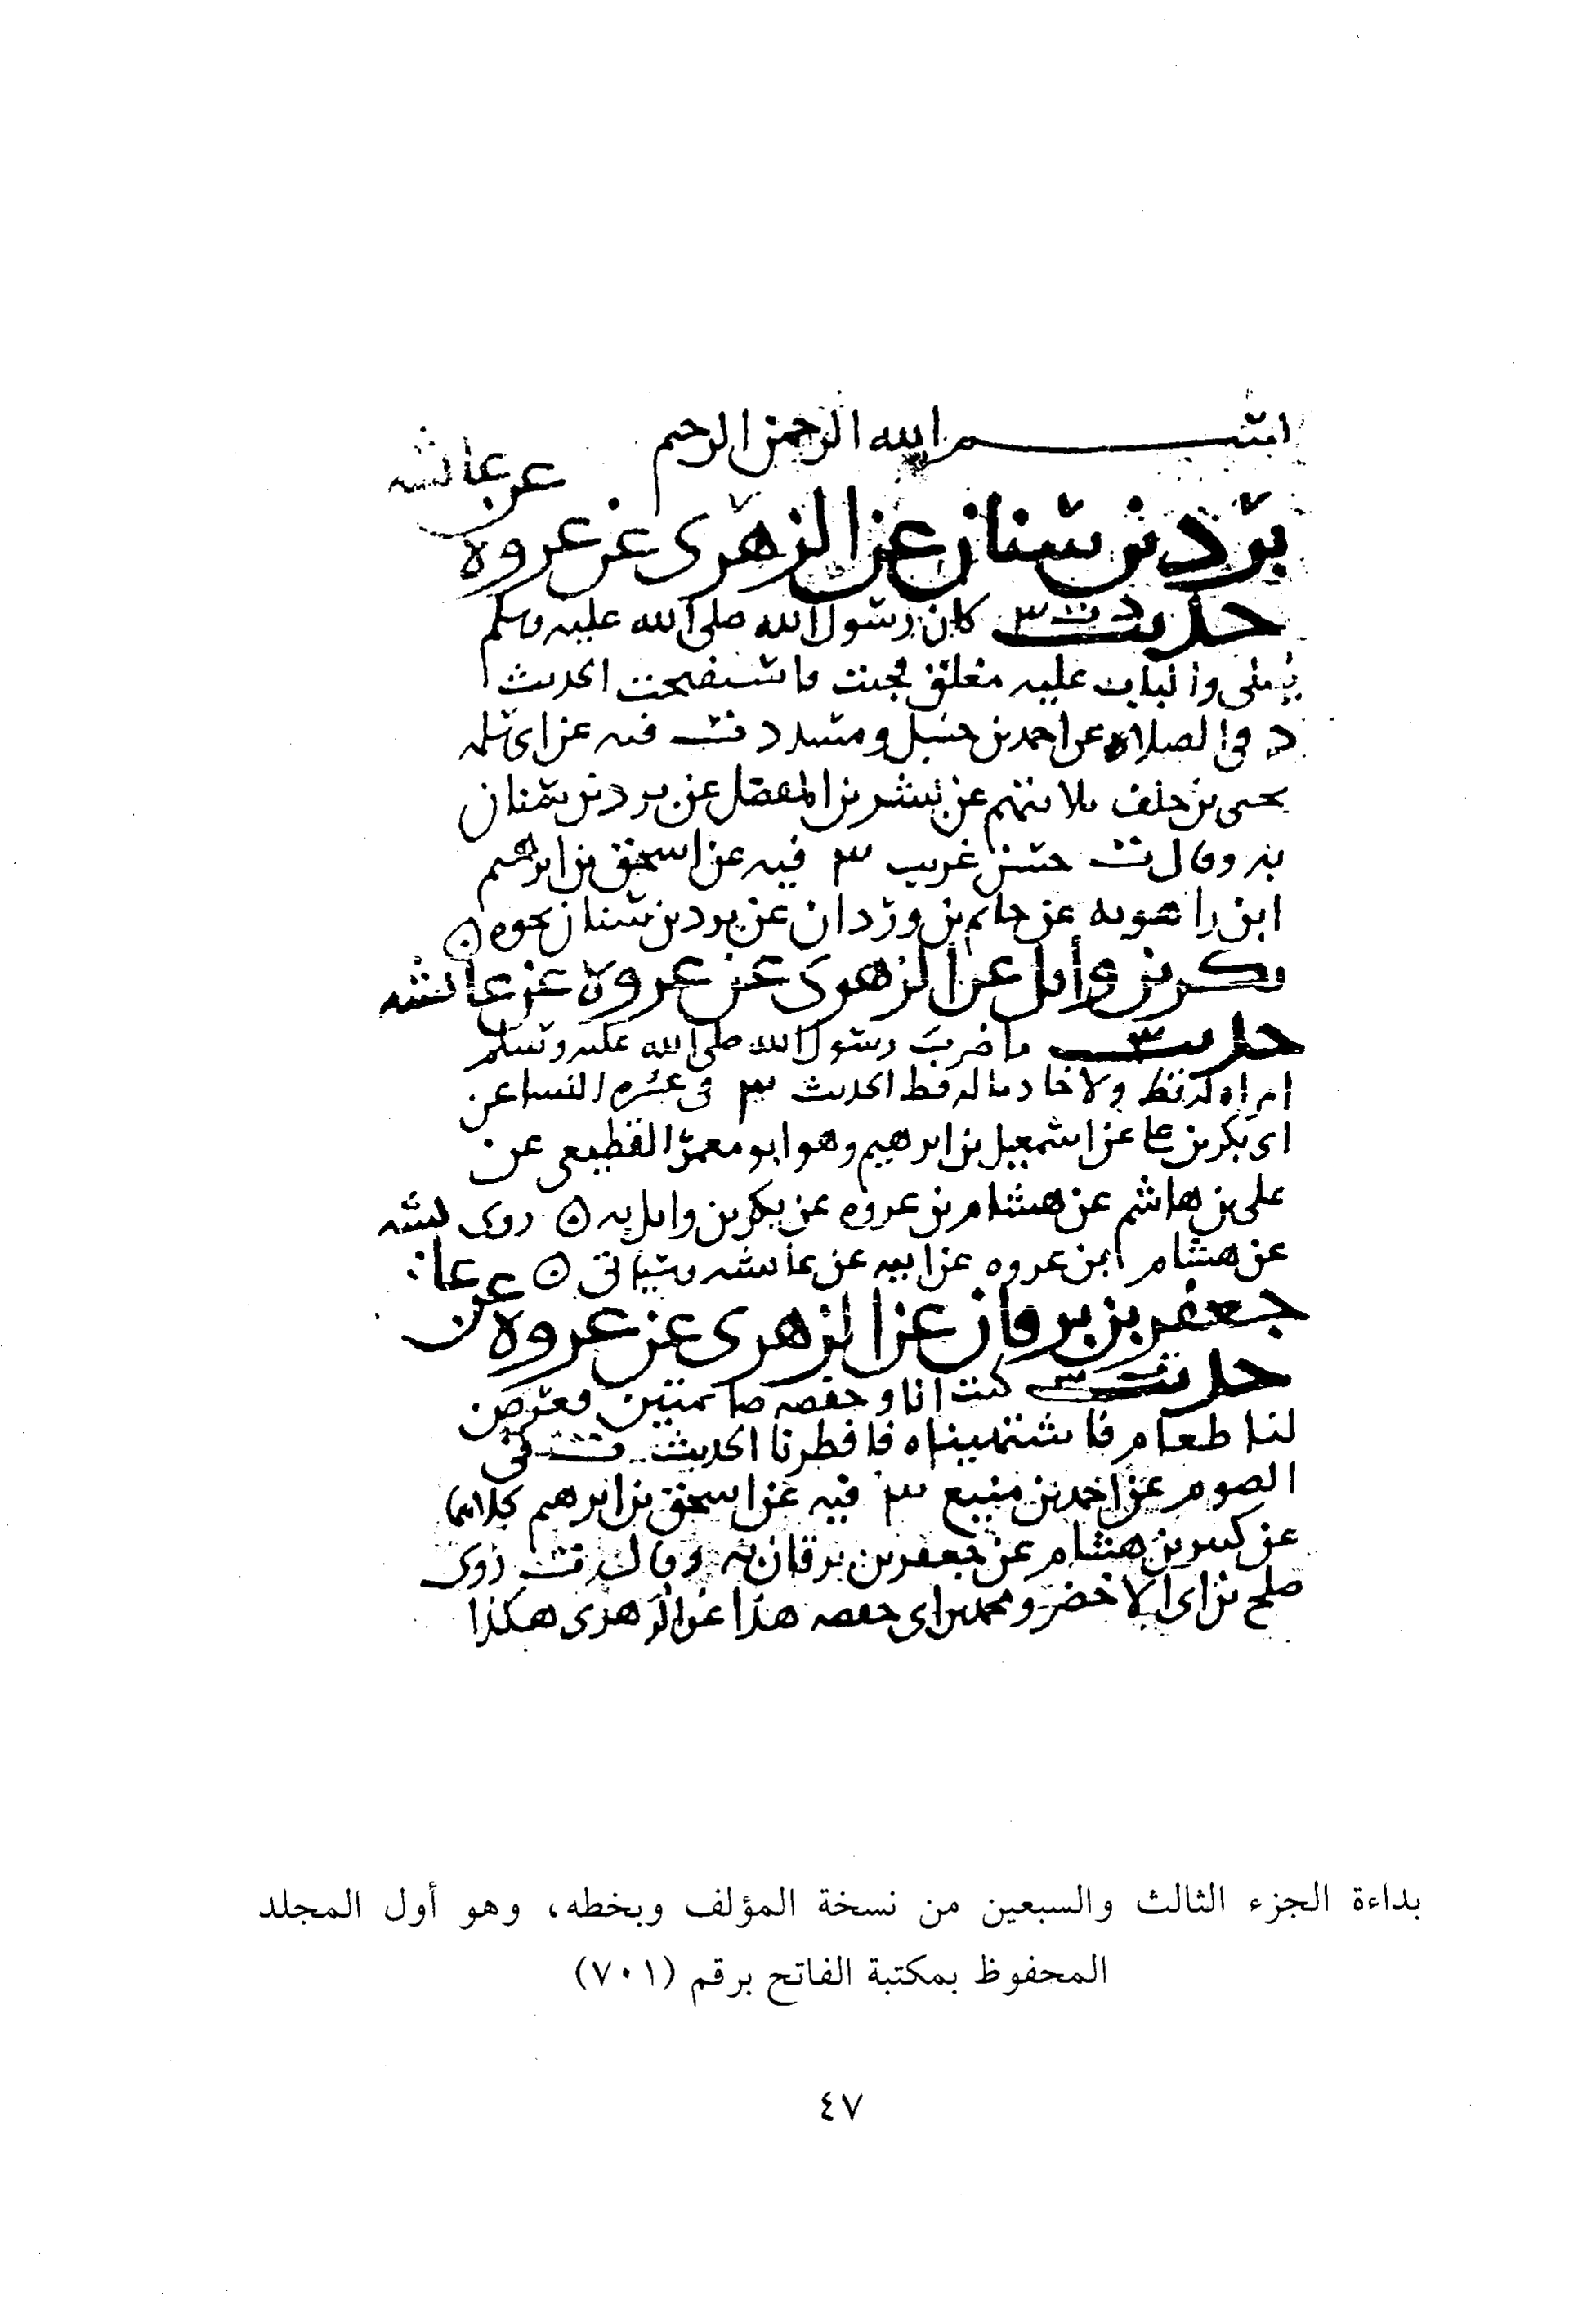 بسم الله الرحمن الرحيم
برد بن سنان عن الزهرى عن عروة عن عائشه
حديث د ت س كان رسول الله صلى الله عليه وسلم
يصلى والباب عليه مغلق فجئت فاستفتحت الحديث
د فى الصلاة عن احمد بن حنبل ومسدد ت فيه عن ابى سلمه
يحيى بن خلف ثلاثتهم عن بشر بن المفضل عن برد بن سنان
به وقال ت حسن غريب س فيه عن اسحق بن ابرهيم
ابن راهويه عن حاتم بن وردان عن برد بن سنان نحوه
بكر بن وائل عن الزهرى عن عروة عن عائشه
حديث س ما ضرب رسول الله صلى الله عليه وسلم
امراه له قط ولا خادما له قط الحديث س فى عشره النسا عن
ابى بكر بن على عن اسمعيل بن ابرهيم وهو ابو معمر القطيعى عن
على بن هاشم عن هشام بن عروه عن بكر بن وائل به روى
عن هشام ابن عروه عن ابيه عن عائشه وسياتى
جعفر بن برقان عن الزهرى عن عروة عن عا
حديث ت س كنت انا وحفصه صائمتين فعرض
لنا طعام فاشتهيناه فافطرنا الحديث ت فى
الصوم عن احمد بن منيع س فيه عن اسحق بن ابرهيم كلاهما
عن كثير بن هشام عن جعفر بن برقان به وقال ت روى
صلح بن ابى الاخضر ومحمد بن ابى حفصه هذا عن الزهرى هكذا
بداءة الجزء الثالث والسبعين من نسخة المؤلف وبخطه، وهو أول المجلد
المحفوظ بمكتبة الفاتح برقم (٧٠١)
٤٧